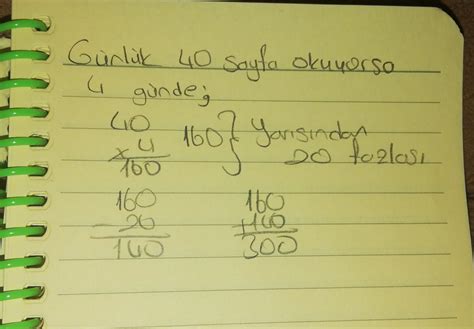 Günlük 40 sayfa okuyorsa
4 günde;
40
x 4
160
160 } Yarısından
20 fazlası
160
- 20
140
160
+140
300